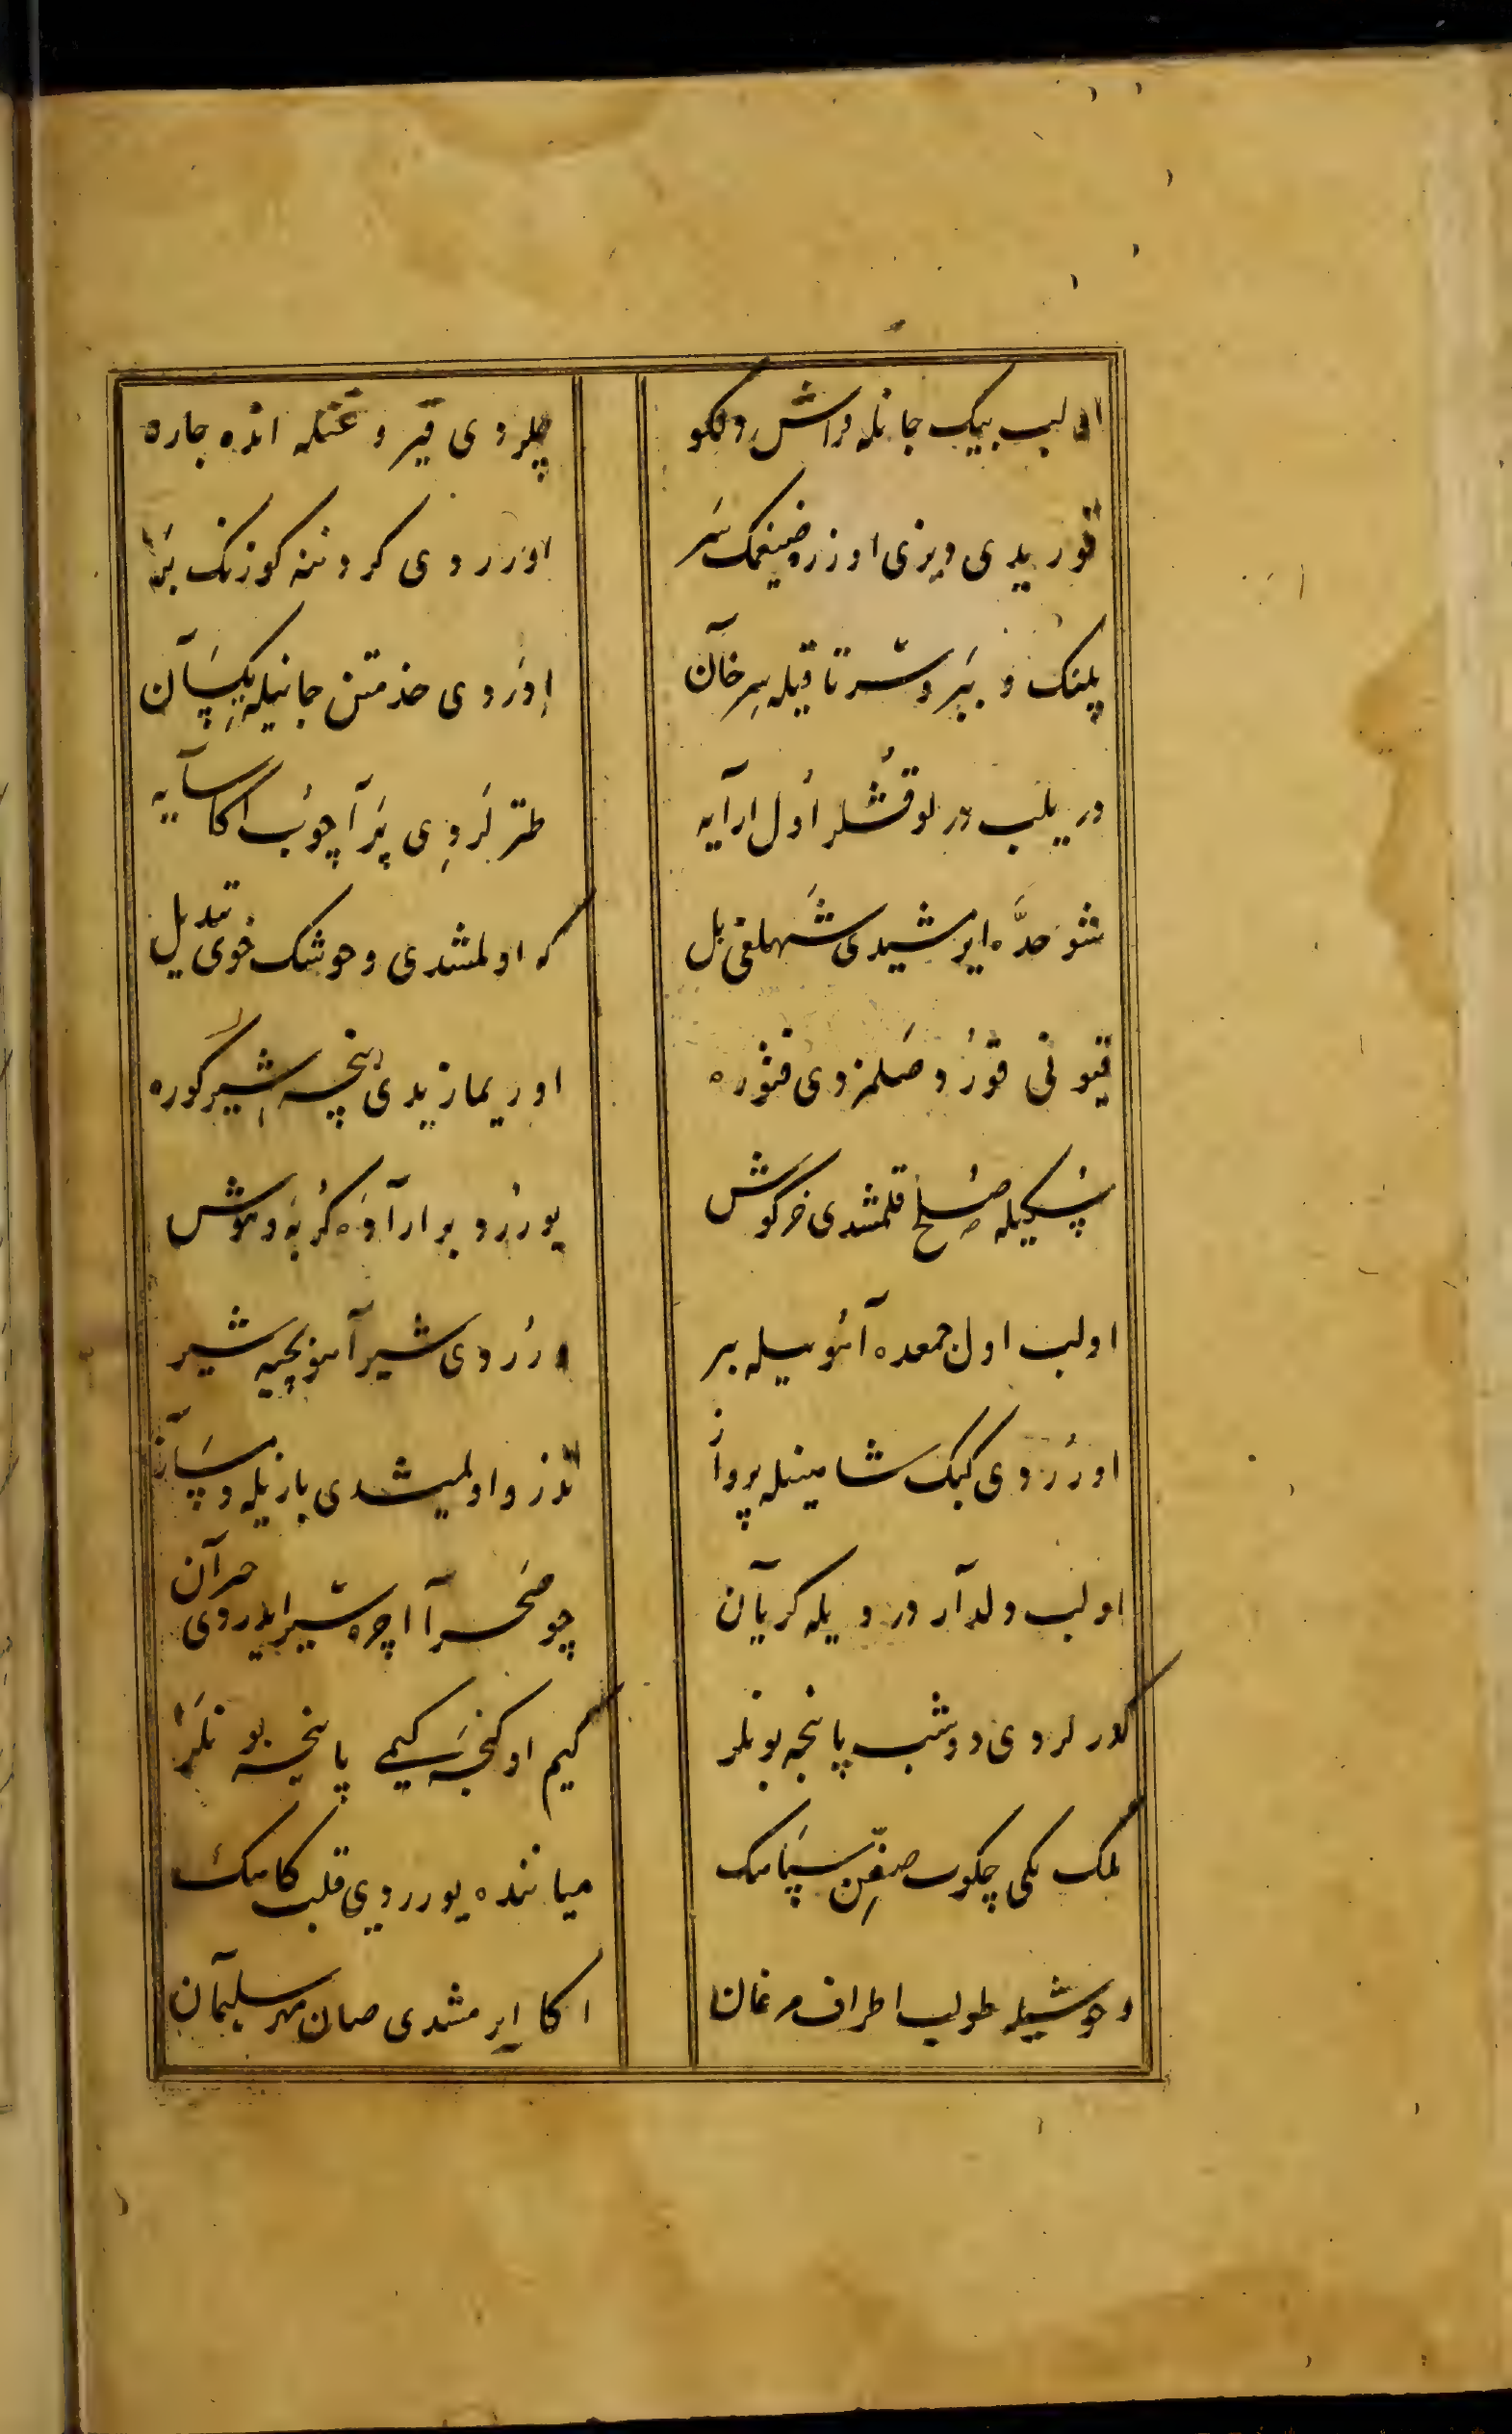 اولب بیک جانله فراش دلکو چلردی قیر و غتله انده جاره
قوریدی دیزی اوزره ضیغمک سر اورردی کردننه کوزنک بر
پلنک و ببر و شیر تا قیله سرخان ادردی خذمتن جانیله یکسان
دریلب درلو قشلر اول ارایه طتر لردی پر آچوب اکا سایه
شو حدّه ایرشیدی شهلغی بل که اولمشدی وحوشک خوی تبدیل
قیونی قورد صلمزدی قنوره اوریمازیدی پنچه شیر کوره
پسکیله صلح قلمشدی خرکوش یوررد بر اراده کربه و موش
اولب اول جمعده آهویله بر ویرردی شیر آهو بچیه شیر
اورردی کبک شاهینله پرواز تدرو اولمیشدی بازیله دمساز
اولب ولدار دردیله کریان چو صحرا اچره شیر ایدردی حرآن
کورلردی دوشب یانجه بونلر کیم اوکنجه کیمی یانجه بونلر
بلک یکی چکوب صفن سپاهک میاننده یورردی قلب کاهک
وحوشیله طولب اطراف مرغان اکا ایرمشدی صان مهر سلیمان